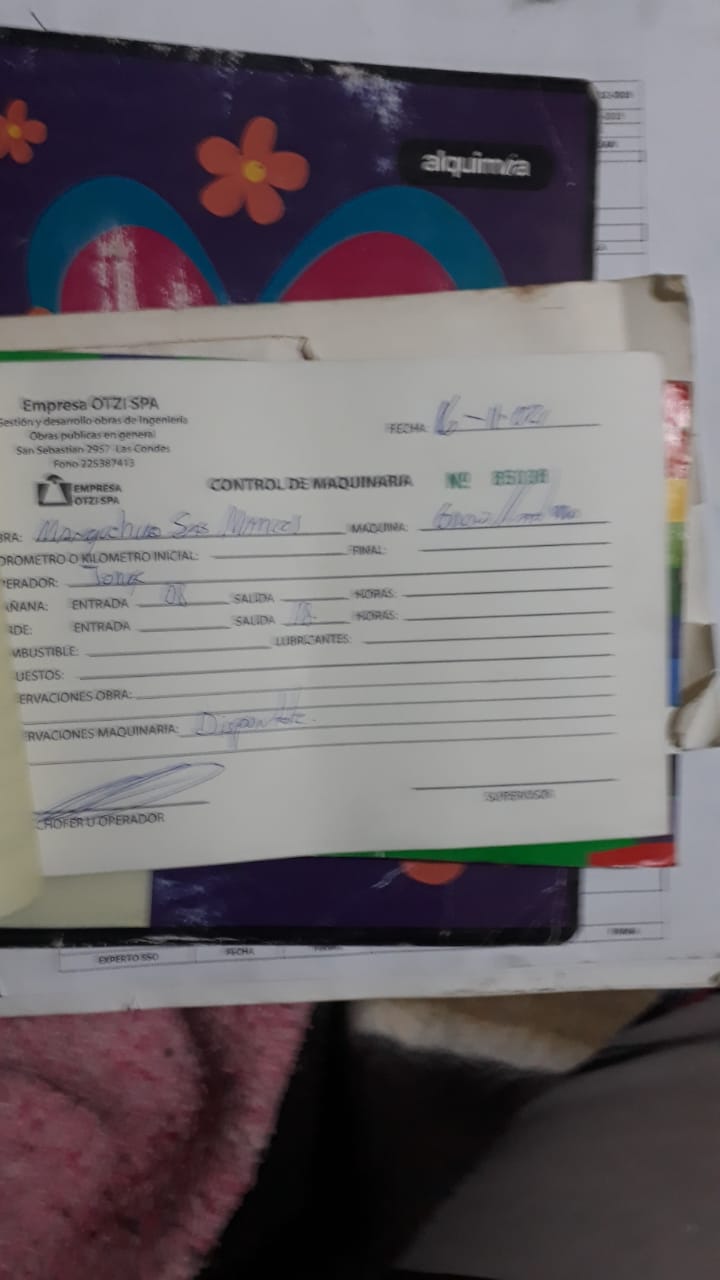 alquimia
Empresa OTZI SPA
Gestión y desarrollo obras de Ingeniería
Obras publicas en general
San Sebastian 2957 Las Condes
Fono 225387413
EMPRESA
OTZI SPA
FECHA: 16-11-
CONTROL DE MAQUINARIA Nº
BRA: San Marcos MAQUINA:
OROMETRO O KILOMETRO INICIAL: FINAL:
ERADOR: Jorge
AÑANA: ENTRADA 08 SALIDA HORAS:
RDE: ENTRADA SALIDA 18 HORAS:
MBUSTIBLE: LUBRICANTES:
UESTOS:
ERVACIONES OBRA:
RVACIONES MAQUINARIA: Disponible.
CHOFER U OPERADOR
SUPERVISOR
EXPERTO SSO FECHA